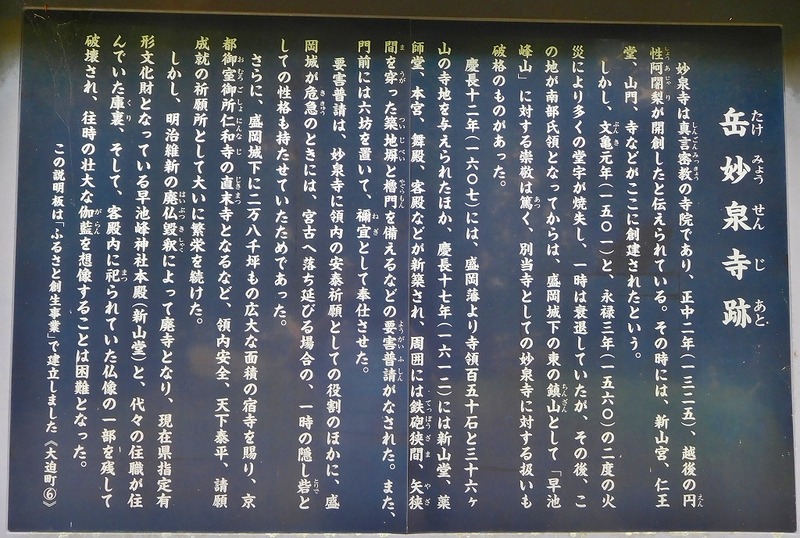 岳妙泉寺跡
たけみょうせんじあと
妙泉寺は真言密教の寺院であり、正中二年(一三二五)、越後の円
性阿闍梨が開創したと伝えられている。その時には、新山宮、仁王
堂、山門、寺などがここに創建されたという。
しかし、文亀元年(一五〇一)と、永禄三年(一五六〇)の二度の火
災により多くの堂宇が焼失し、一時は衰退していたが、その後、こ
の地が南部氏領となってからは、盛岡城下の東の鎮山として「早池
峰山」に対する崇敬は篤く、別当寺としての妙泉寺に対する扱いも
破格のものがあった。
慶長十二年(一六〇七)には、盛岡藩より寺領百五十石と三十六ヶ
山の寺地を与えられたほか、慶長十七年(一六一二)には新山堂、薬
師堂、本宮、舞殿、客殿などが新築され、周囲には鉄砲狭間、矢狭
間を穿った築地塀と櫓門を備えるなどの要害普請がなされた。また、
門前には六坊を置いて、禰宜として奉仕させた。
要害普請は、妙泉寺に領内の安泰祈願としての役割のほかに、盛
岡城が危急のときには、宮古へ落ち延びる場合の、一時の隠し砦と
しての性格も持たせていたためであった。
さらに、盛岡城下に二万八千坪もの広大な面積の宿寺を賜り、京
都御室御所仁和寺の直末寺となるなど、領内安全、天下泰平、請願
成就の祈願所として大いに繁栄を続けた。
しかし、明治維新の廃仏毀釈によって廃寺となり、現在県指定有
形文化財となっている早池峰神社本殿(新山堂)と、代々の住職が住
んでいた庫裏、そして、客殿内に祀られていた仏像の一部を残して
破壊され、往時の壮大な伽藍を想像することは困難となった。
この説明板は「ふるさと創生事業」で建立しました《大迫町⑥》